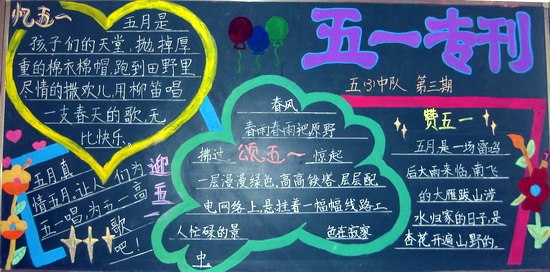 忆五一
五月是
孩子们的天堂,抛掉厚
重的棉衣棉帽,跑到田野里
尽情的撒欢儿,用柳笛唱
一支春天的歌,无
比快乐。
五一专刊
五(3)中队 第三期
迎五一
五月真
情五月,让人们为
五一唱,为五一高
歌
吧!
春风
春雨春雨把原野
拂过,颂五一惊起
一层漫漫绿色,高高铁塔,层层配
电网络上,是挂着一幅幅线路工
人忙碌的景 色在寂寥
中。
赞五一
五月是一场宿鸟
后大雨来临,南飞
的大雁跋山涉
水归家的日子,是
杏花开遍山野的。